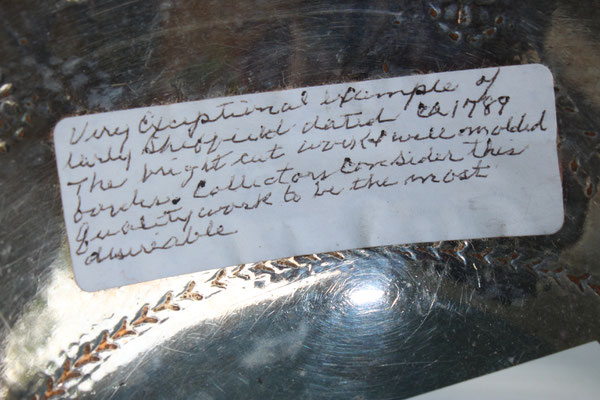 Very Exceptional example of
early Sheffield dated ca 1789
The bright cut work & well molded
border. Collectors consider this
quality work to be the most
desireable